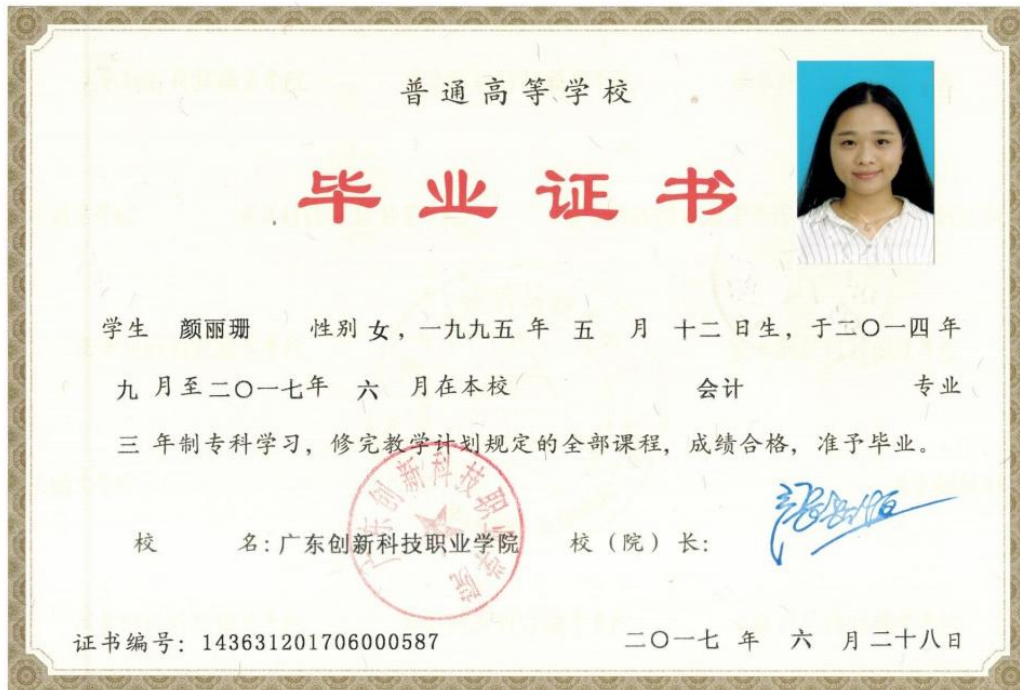 普通高等学校
毕业证书
学生 颜丽珊 性别 女，一九九五 年 五 月 十二 日生，于二〇一四 年
九 月至二〇一七年 六 月在本校 会计 专业
三 年制专科学习，修完教学计划规定的全部课程，成绩合格，准予毕业。
广东创新科技职业学院
校 名：广东创新科技职业学院 校（院）长：
证书编号：143631201706000587 二〇一七 年 六 月 二十八日